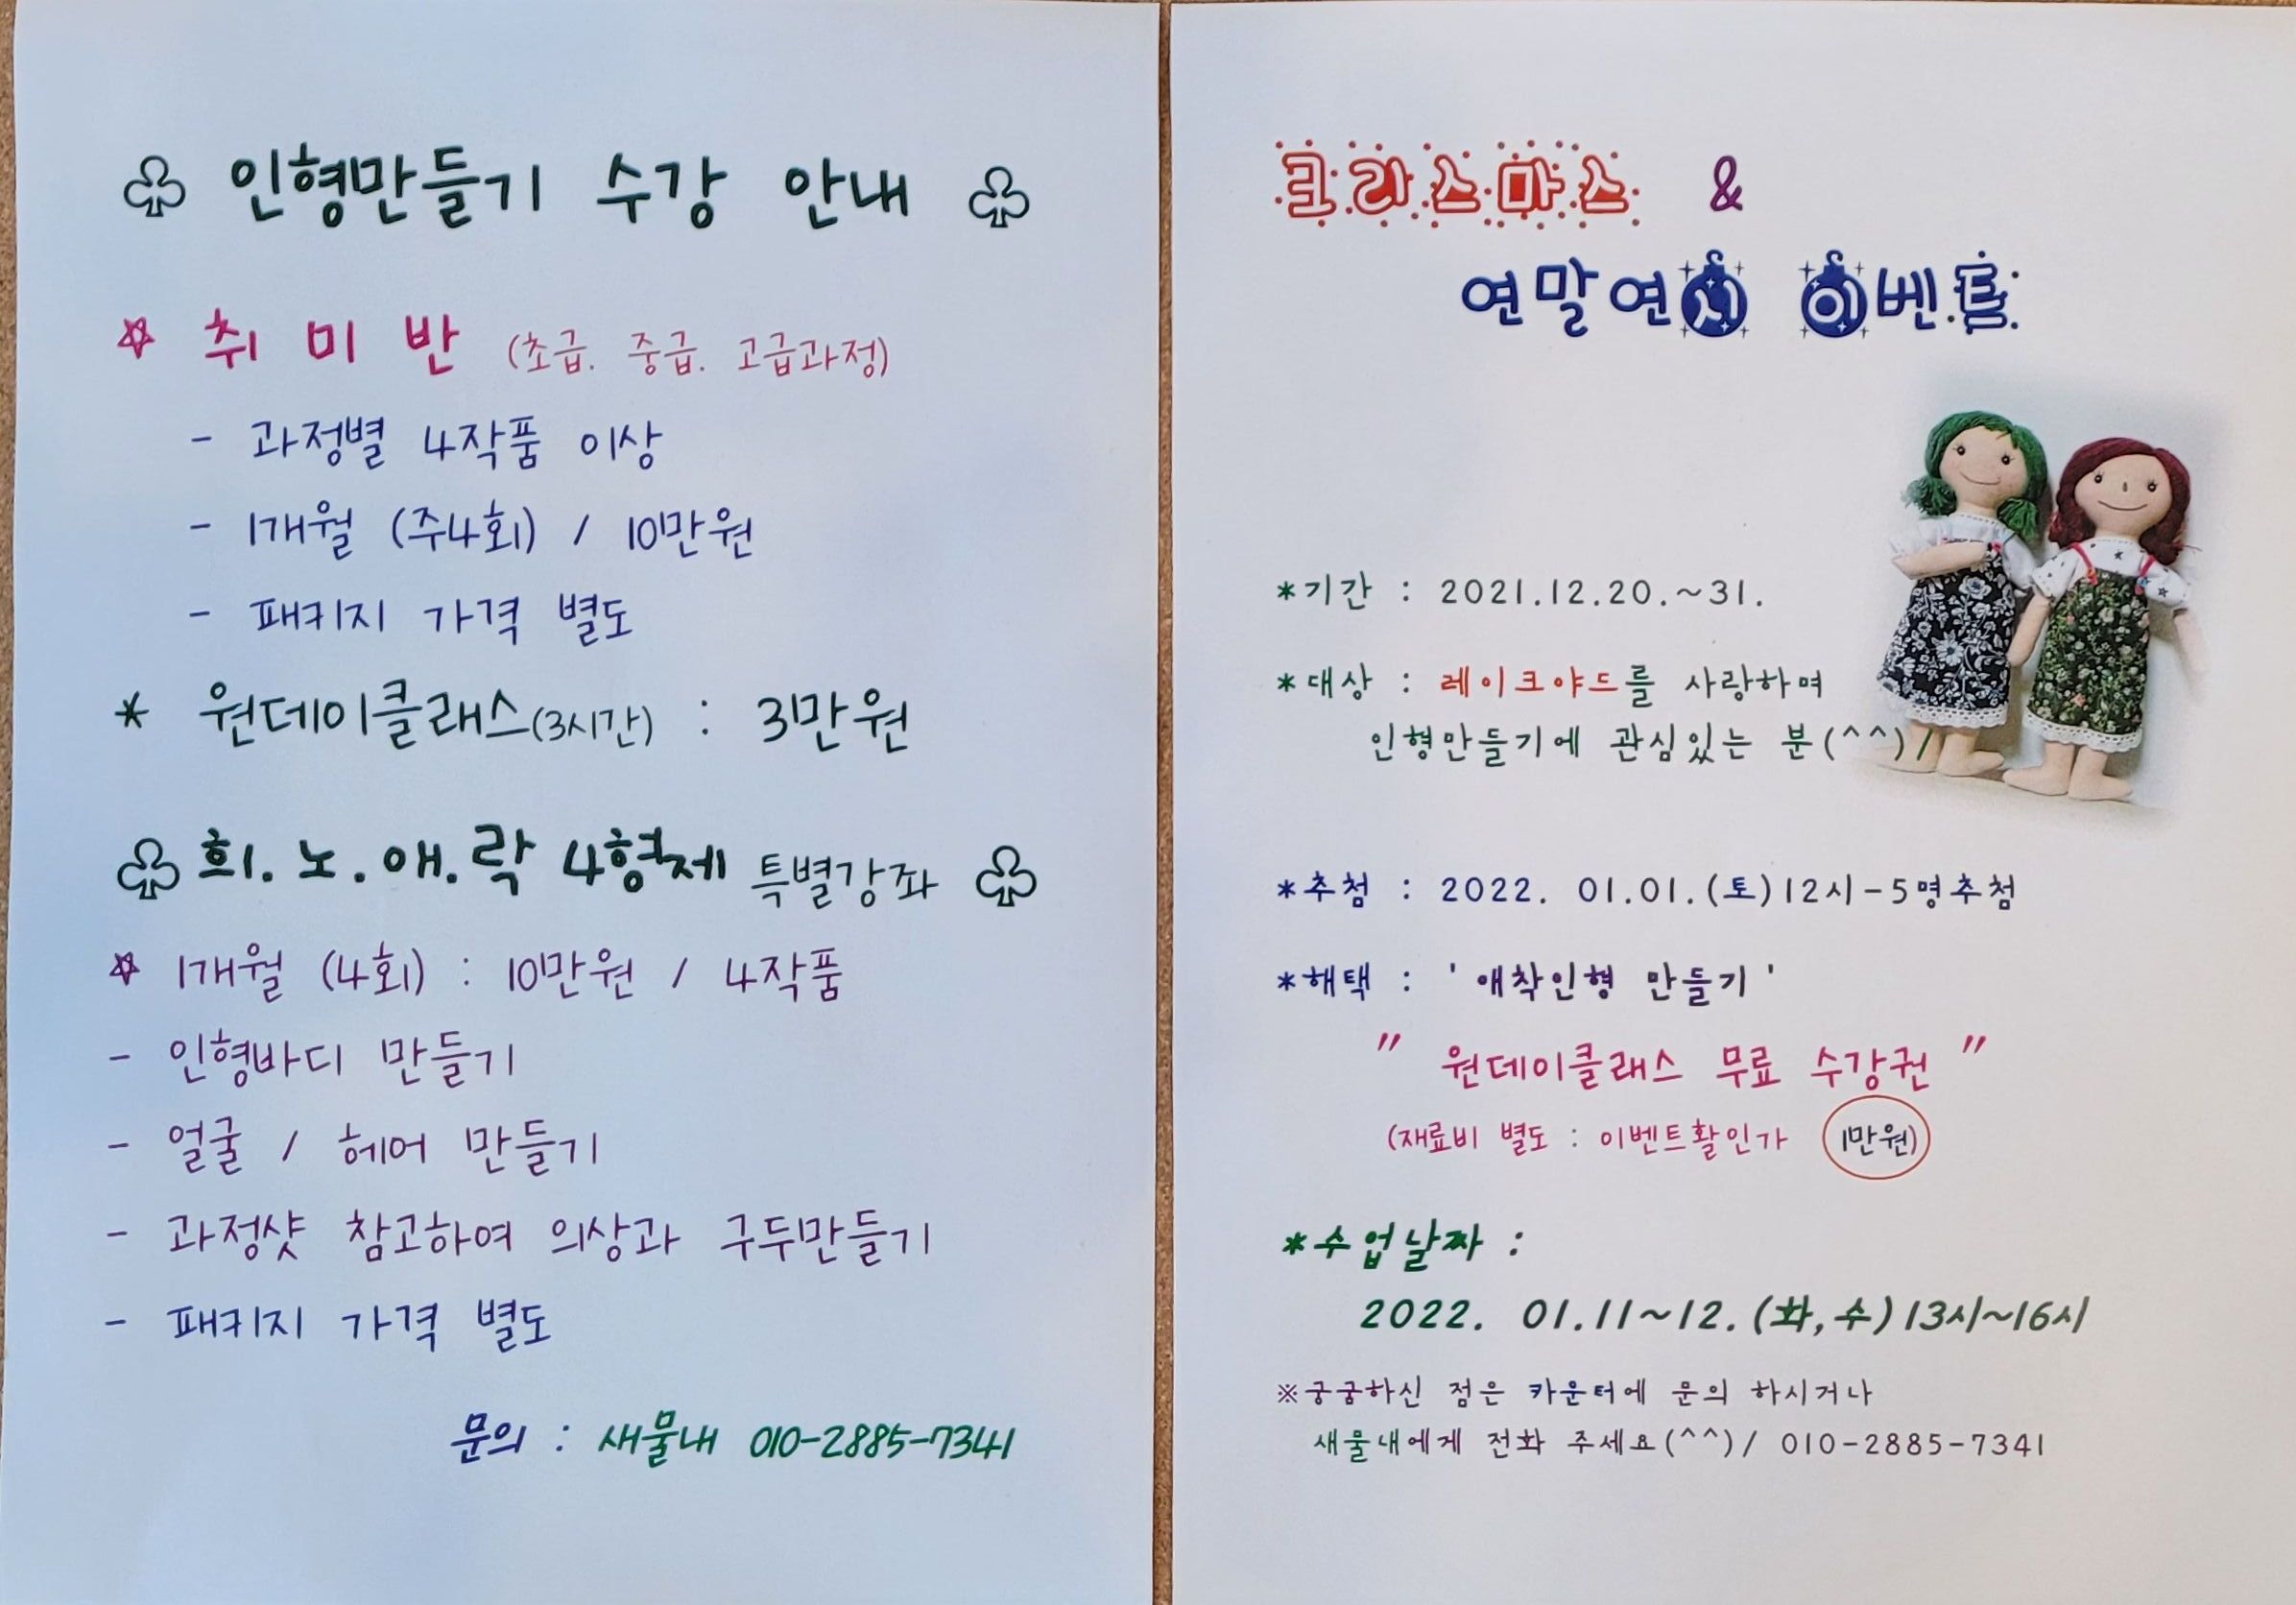 ♧ 인형만들기 수강 안내 ♧
☆ 취 미 반 (초급. 중급. 고급과정)
- 과정별 4작품 이상
- 1개월 (주4회) / 10만원
- 패키지 가격 별도
* 원데이클래스(3시간) : 3만원
♧ 희.노.애.락 4형제 특별강좌 ♧
☆ 1개월 (4회) : 10만원 / 4작품
- 인형바디 만들기
- 얼굴 / 헤어 만들기
- 과정샷 참고하여 의상과 구두만들기
- 패키지 가격 별도
문의 : 새물내 010-2885-7341
크리스마스 &
연말연시 이벤트
*기간 : 2021.12.20.~31.
*대상 : 레이크야드를 사랑하며
인형만들기에 관심있는 분(^^)/
*추첨 : 2022. 01.01.(토)12시-5명추첨
*혜택 : '애착인형 만들기'
" 원데이클래스 무료 수강권 "
(재료비 별도 : 이벤트활인가 1만원)
*수업날짜 :
2022. 01.11~12.(화,수)13시~16시
※궁궁하신 점은 카운터에 문의 하시거나
새물내에게 전화 주세요(^^)/ 010-2885-7341